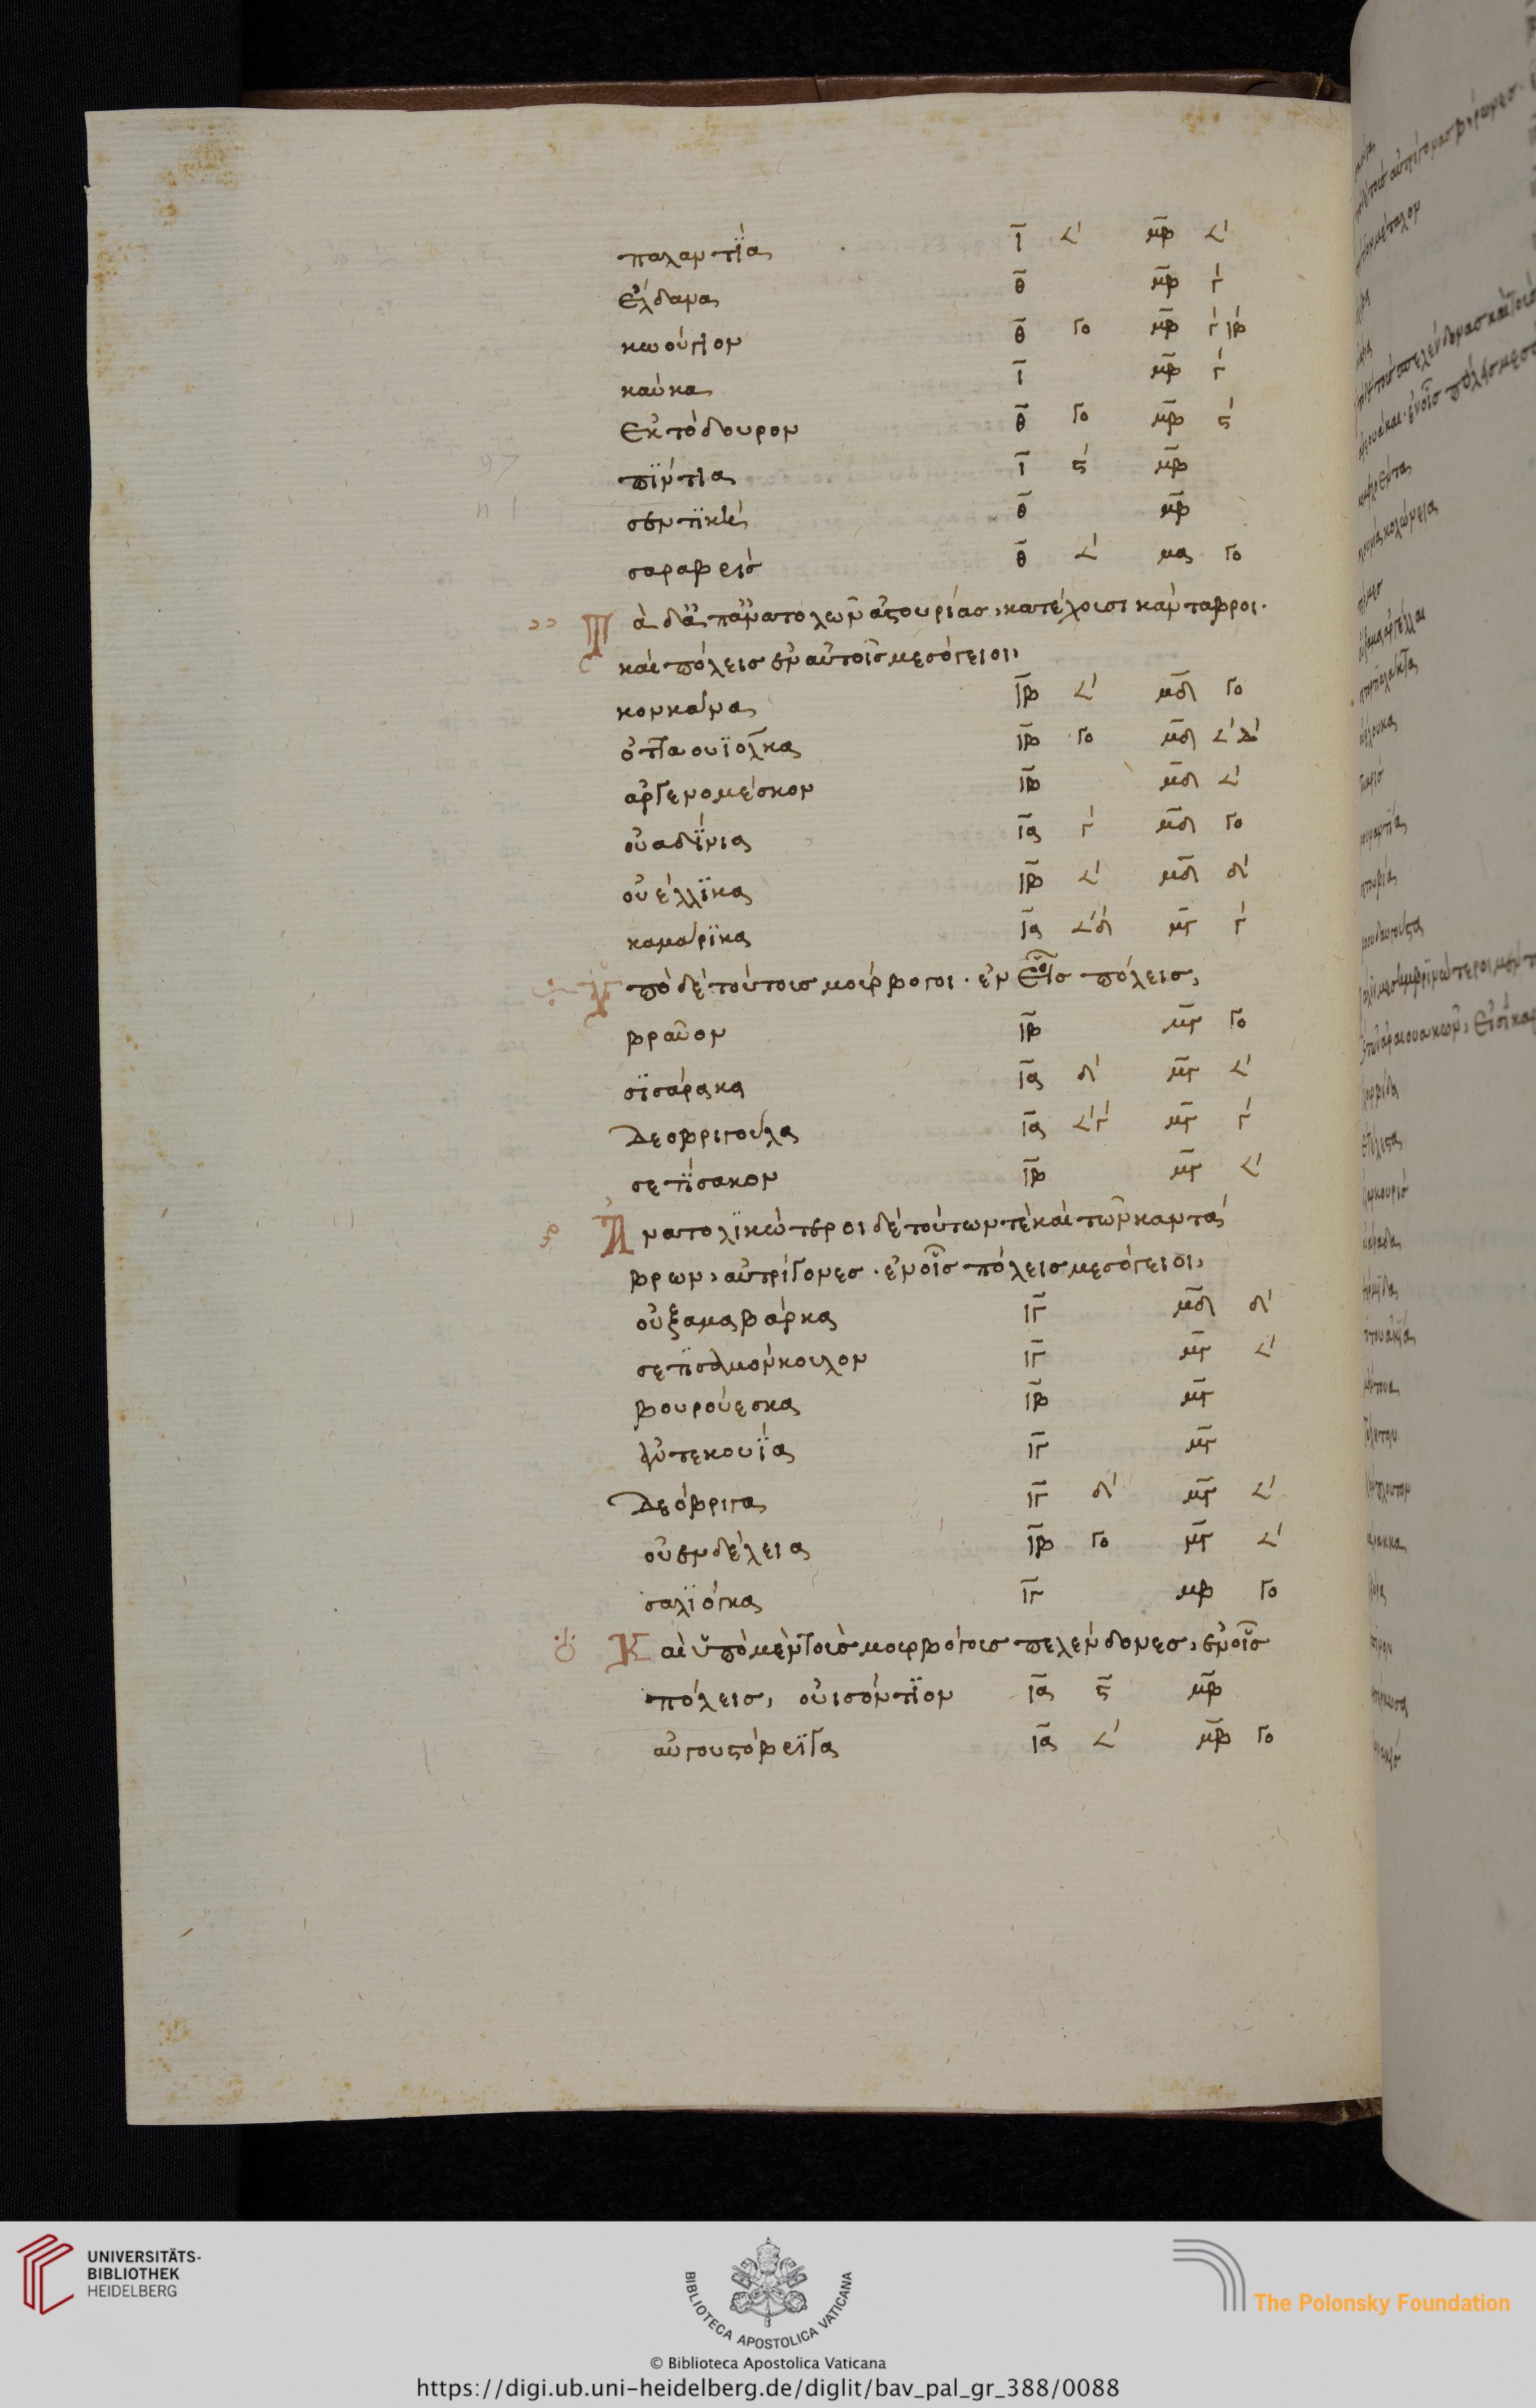 παλαντΐα ῑ 𐅵ʹ μ̅β̅ 𐅵ʹ
ἔλδανα θ̅ μ̅β̅ γʹ
κωούγιον θ̅ γο μ̅β̅ γʹ ιβʹ
καύκα ῑ μ̅β̅ γʹ
ἐκτόδουρον θ̅ γο μ̅β̅ ϛʹ
πΐντια ῑ ϛʹ μ̅β̅
σεντϊκὴ θ̅ μ̅β̅
σαραβρίσ θ̅ 𐅵ʹ μα γο
Τὰ δὲ ἀπανατολῶν ἀστουρίασ, κατέχουσι κάνταβροι.
καὶ πόλεισ ἐν αὐτοῖσ μεσόγειοι,
κονκάνα ι̅β̅ 𐅵ʹ μ̅δ̅ γο
ὀτταουϊόλκα ι̅β̅ γο μ̅δ̅ 𐅵ʹ δʹ
ἀργενομέσκον ι̅β̅ μ̅δ̅ 𐅵ʹ
οὐαδΐνια ι̅α̅ γʹ μ̅δ̅ γο
οὐέλλϊκα ι̅β̅ 𐅵ʹ μ̅δ̅ δʹ
καμάρϊκα ι̅α̅ 𐅵ʹδʹ μ̅γ̅ γʹ
Ὑπὸ δὲ τούτουσ μούρβογοι. ἐν οἷσ πόλεισ,
βραῦον ι̅β̅ μ̅γ̅ γο
σϊσάρακα ι̅α̅ δʹ μ̅γ̅ 𐅵ʹ
Δεοβριγούλα ι̅α̅ 𐅵ʹγʹ μ̅γ̅ γʹ
σετΐσακον ι̅β̅ μ̅γ̅ 𐅵ʹ
Ἀνατολϊκώτεροι δὲ τούτων τὲ καὶ τῶν καντά
βρων, αὐτρίγονεσ. ἐν οἷσ πόλεισ μεσόγειοι,
οὐξαμαβάρκα ι̅γ̅ μ̅δ̅ δʹ
σετϊσαλμόνκουλον ι̅γ̅ μ̅γ̅ 𐅵ʹ
βουρούεσκα ι̅β̅ μ̅γ̅
ἀντεκουΐα ι̅γ̅ μ̅γ̅
Δεόβριγα ι̅γ̅ δʹ μ̅γ̅ 𐅵ʹ
οὐενδέλεια ι̅β̅ γο μ̅γ̅ 𐅵ʹ
σαλϊόγκα ι̅γ̅ μβ γο
Καὶ ὑπὸ μὲν τοὺσ μουρβόγουσ πελένδονεσ, ἐν οἷσ
πόλεισ, οὐισόντϊον ι̅α̅ ϛ̅ μ̅β̅
αὐγουστόβρϊγα ι̅α̅ 𐅵ʹ μ̅β̅ γο
UNIVERSITÄTS-
BIBLIOTHEK
HEIDELBERG
BIBLIOTECA APOSTOLICA VATICANA
The Polonsky Foundation
© Biblioteca Apostolica Vaticana
https://digi.ub.uni-heidelberg.de/diglit/bav_pal_gr_388/0088